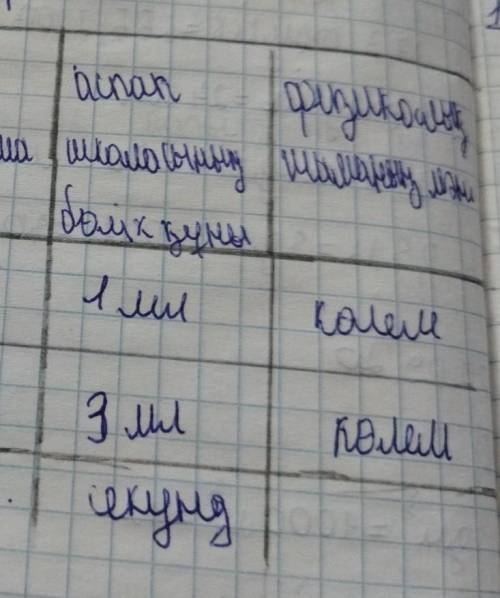 аспап физикалық
ша шкаласының шаманың мәні
бөлік құны
1 мл көлем
3 мл көлем
секунд